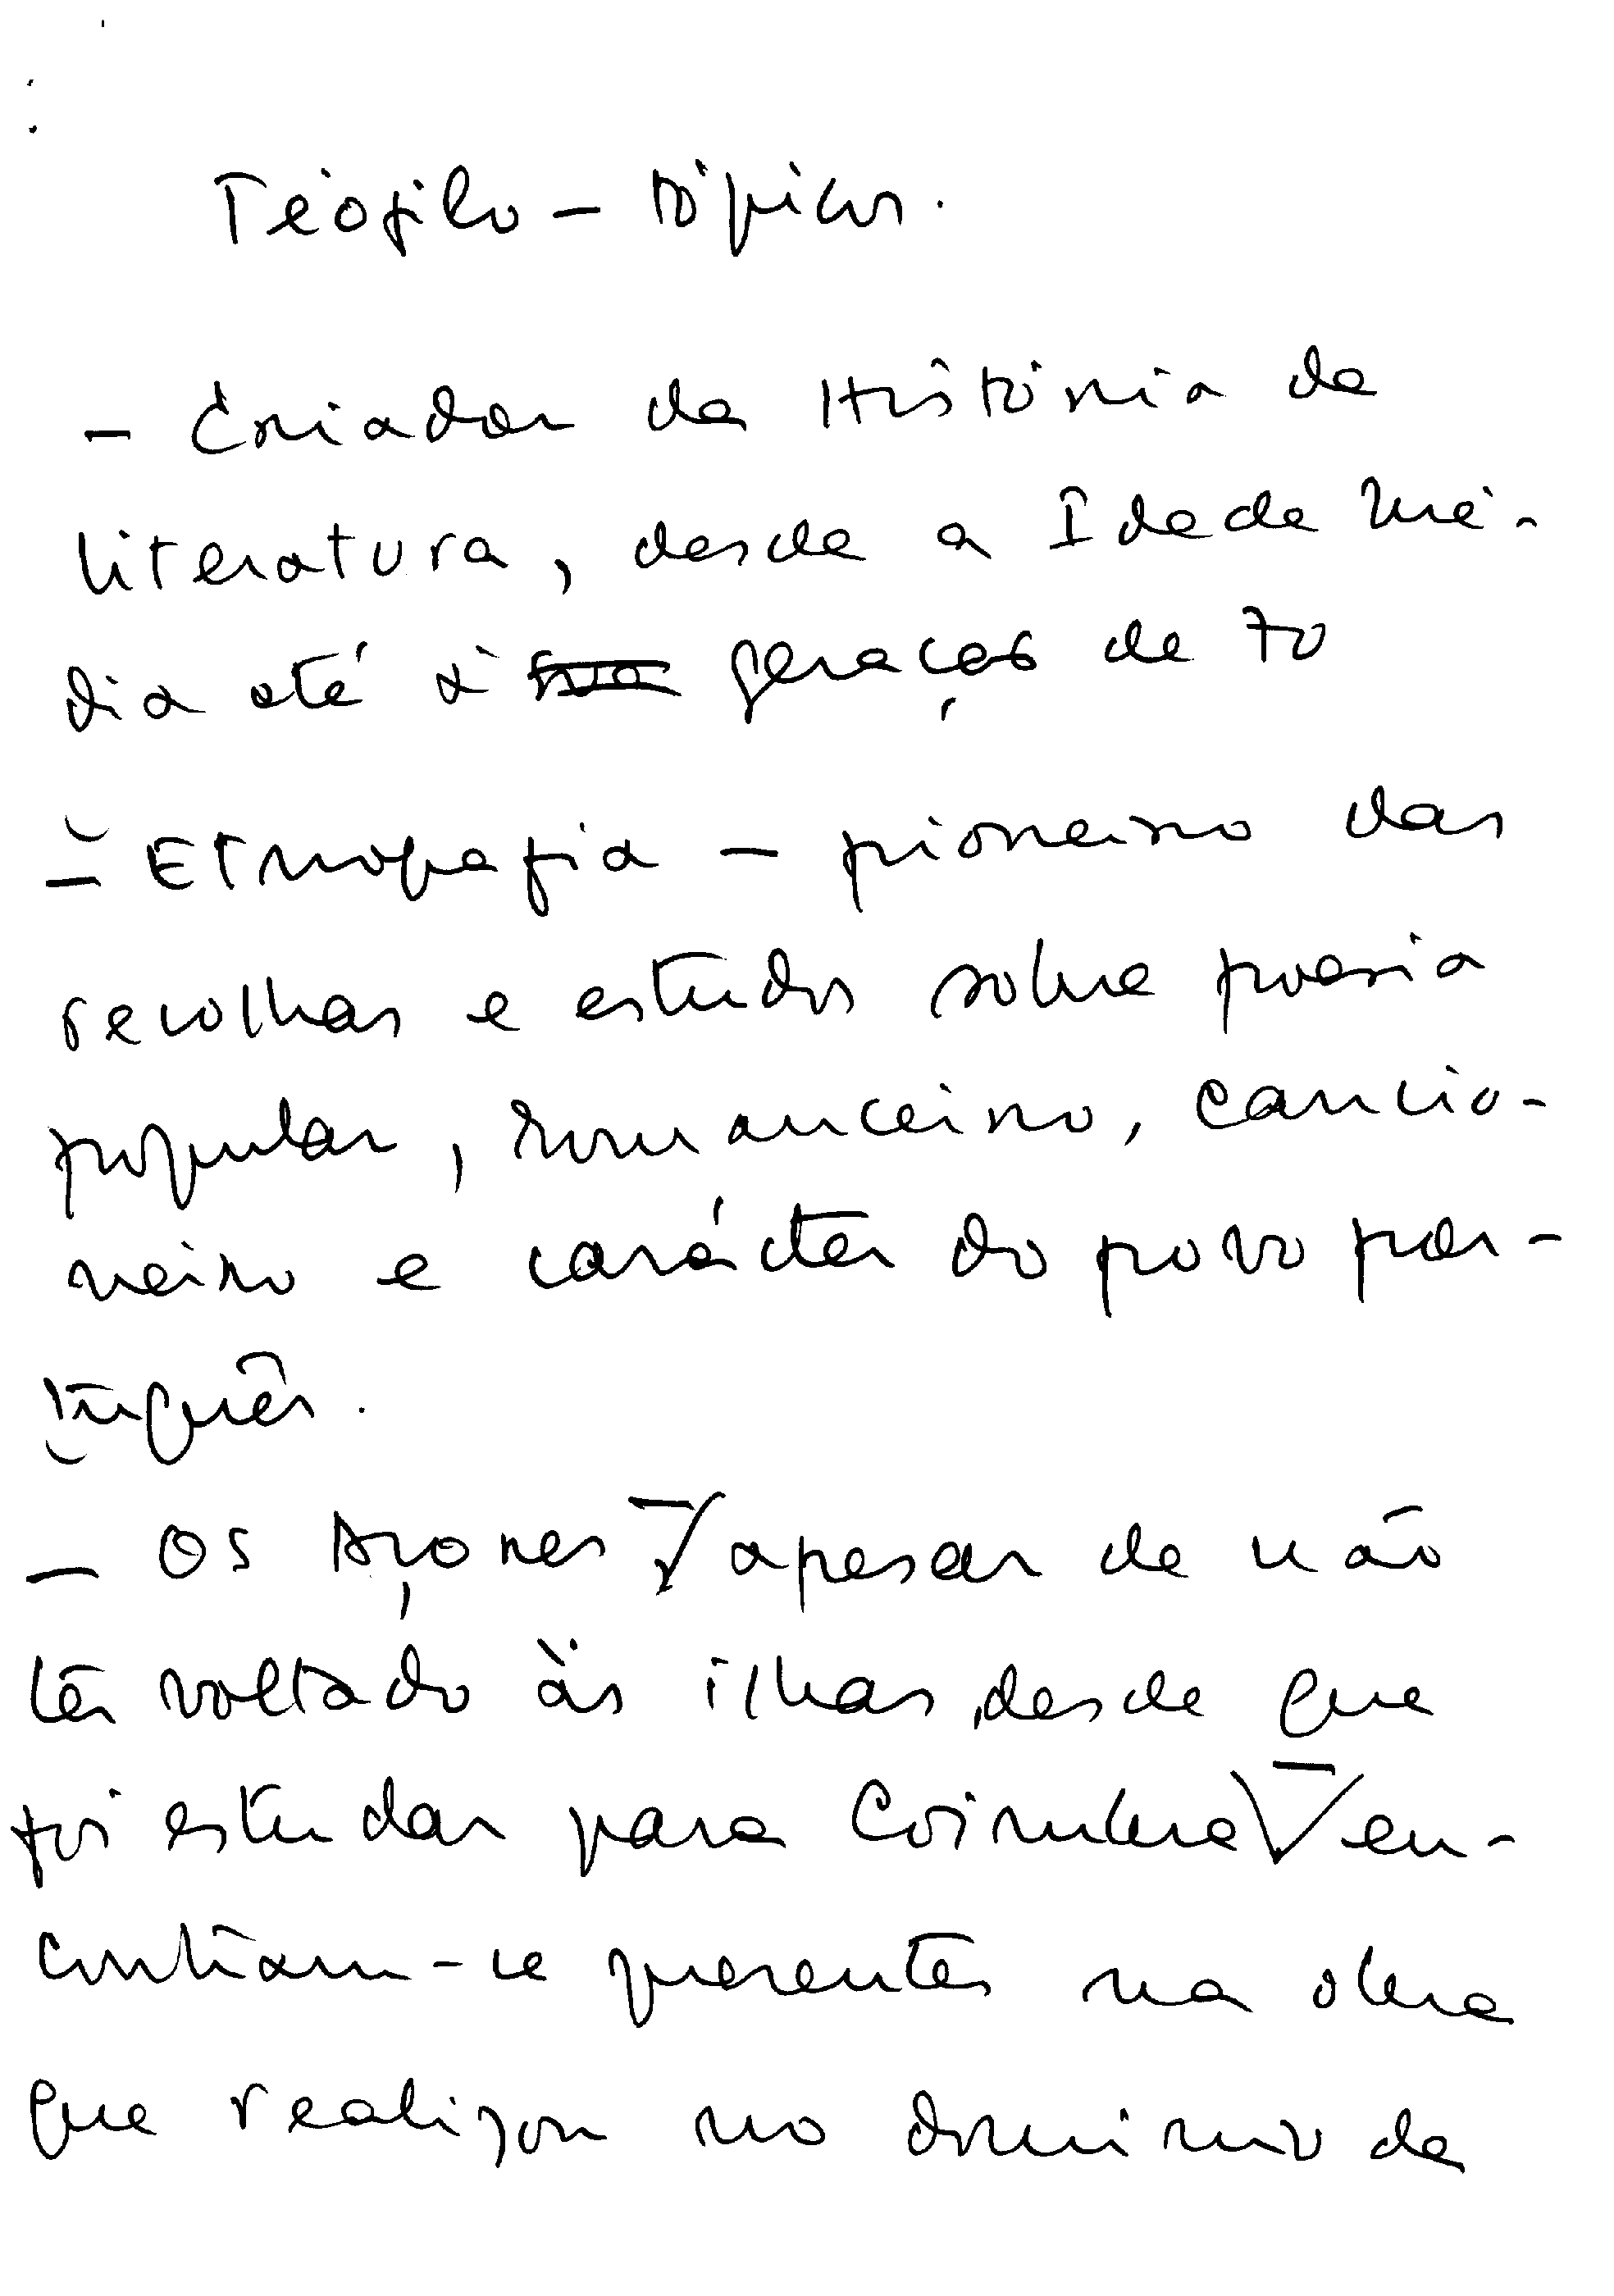 Teófilo – tópicos.
– Criador da História da
literatura, desde a Idade Mé-
dia até à sua geração de 70
– Etnografia – pioneiro das
recolhas e estudos sobre poesia
popular, romanceiro, cancio-
neiro e carácter do povo por-
tuguês.
– Os Açores apesar de não
ter voltado às ilhas, desde que
foi estudar para Coimbra en-
contram-se presentes na obra
que realizou no domínio da